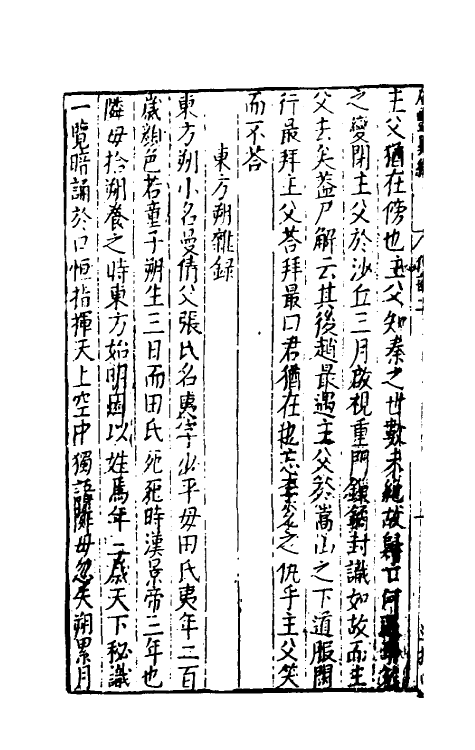 主父猶在傍也主父知秦之世數未絶故歸
之變閉主父於沙丘三月啟視重門鎖鑰封識如故而主
父去矣蓋尸解云其後趙最遇主父於嵩山之下道服閑
行最拜主父荅拜最曰君猶在也忘李兌之仇乎主父笑
而不荅
東方朔雜録
東方朔小名曼倩父張氏名夷字少平母田氏夷年二百
歲顏色若童子朔生三日而田氏死死時漢景帝三年也
隣母拾朔養之時東方始明因以姓焉年三歲天下秘識
一覽暗誦於口恒指揮天上空中獨語隣母忽失朔累月